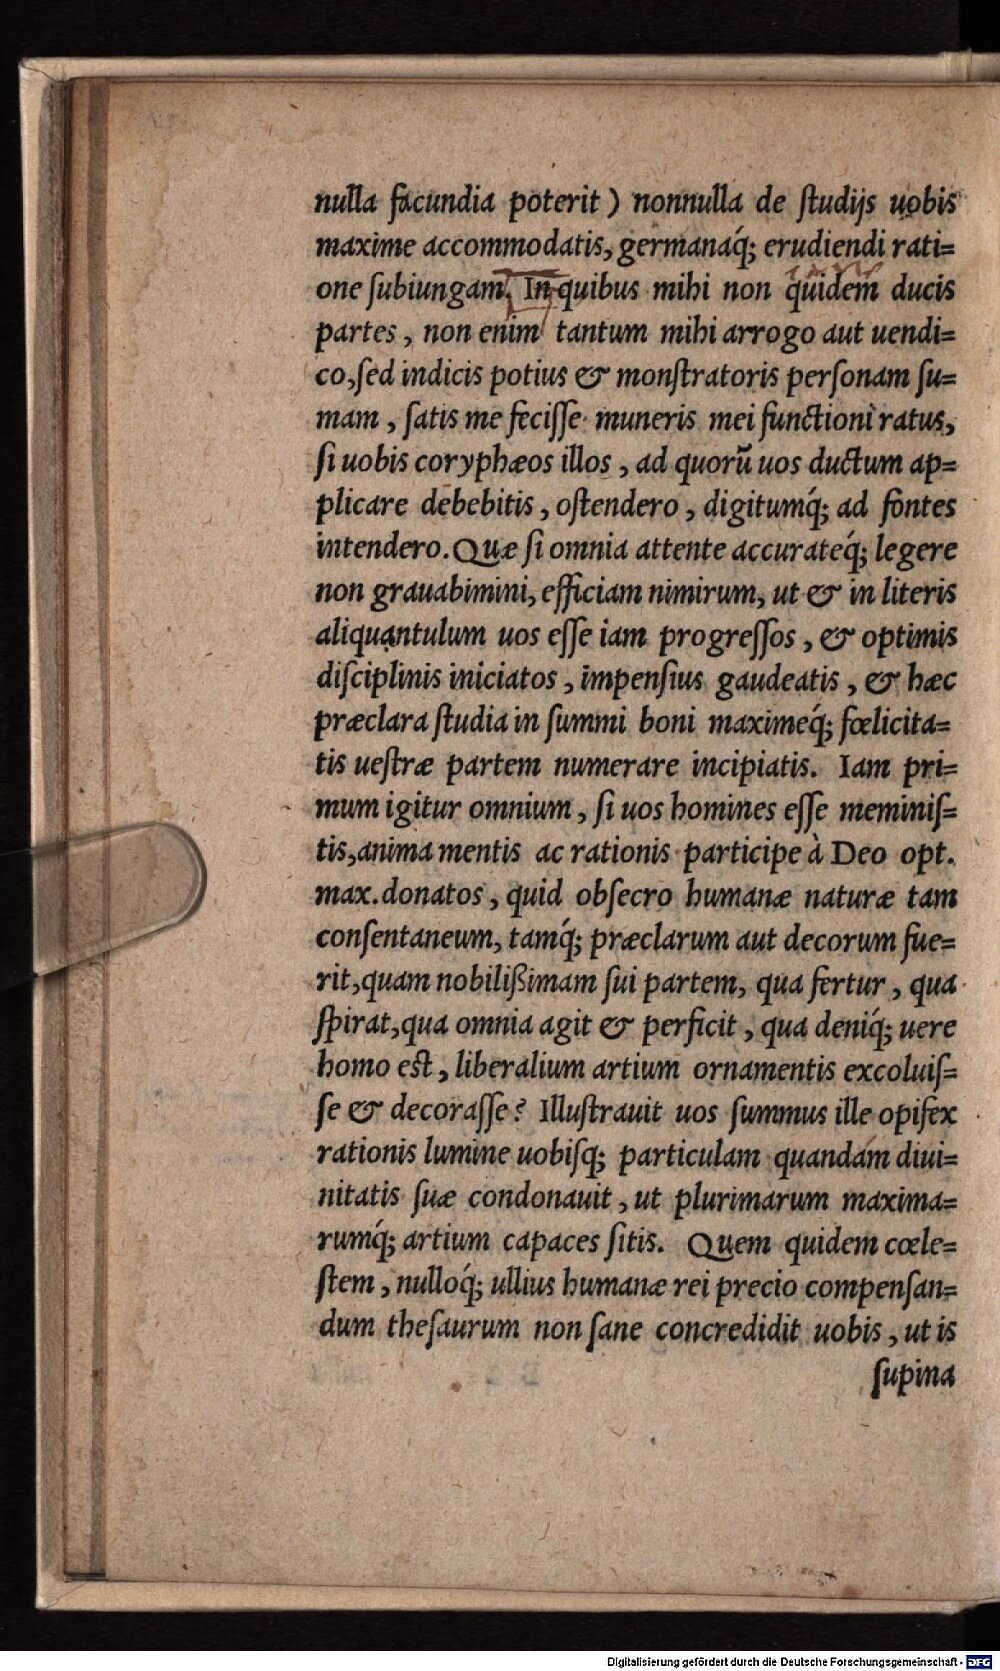 nulla facundia poterit) nonnulla de ſtudijs uobis
maxime accommodatis, germanaq́; erudiendi rati=
one ſubiungam. In quibus mihi non quidem ducis
partes, non enim tantum mihi arrogo aut uendi=
co, ſed indicis potius & monſtratoris perſonam ſu=
mam, ſatis me feciſſe muneris mei functioni ratus,
ſi uobis coryphæos illos, ad quorū uos ductum ap=
plicare debebitis, oſtendero, digitumq́; ad fontes
intendero. Quæ ſi omnia attente accurateq́; legere
non grauabimini, efficiam nimirum, ut & in literis
aliquantulum uos eſſe iam progreſſos, & optimis
diſciplinis iniciatos, impenſius gaudeatis, & hæc
præclara ſtudia in ſummi boni maximeq́; fœlicita=
tis ueſtræ partem numerare incipiatis. Iam pri=
mum igitur omnium, ſi uos homines eſſe meminiſ=
tis, anima mentis ac rationis participe à Deo opt.
max. donatos, quid obſecro humanæ naturæ tam
conſentaneum, tamq́; præclarum aut decorum fue=
rit, quam nobilißimam ſui partem, qua fertur, qua
ſpirat, qua omnia agit & perficit, qua deniq́; uere
homo eſt, liberalium artium ornamentis excoluiſ=
ſe & decoraſſe? Illuſtrauit uos ſummus ille opifex
rationis lumine uobiſq́; particulam quandam diui=
nitatis ſuæ condonauit, ut plurimarum maxima=
rumq́; artium capaces ſitis. Quem quidem cœle=
ſtem, nulloq́; ullius humanæ rei precio compenſan=
dum theſaurum non ſane concredidit uobis, ut is
ſupina
Digitalisierung gefördert durch die Deutsche Forschungsgemeinschaft - DFG